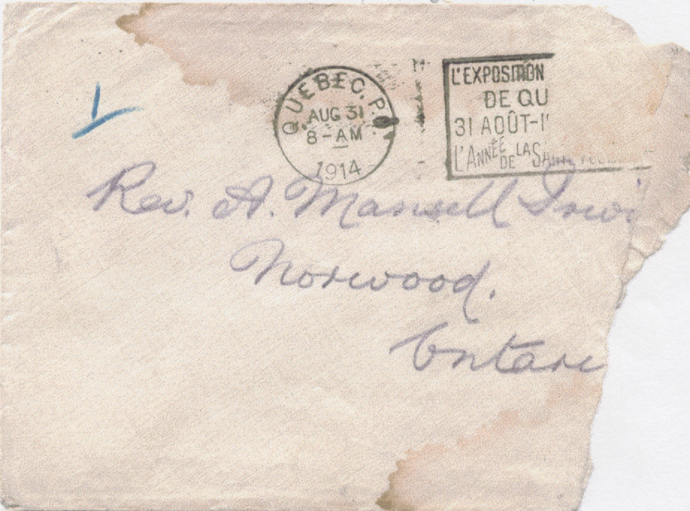 QUEBEC, P.Q.
AUG 31
8-AM
1914
L'EXPOSITION
DE QU
31 AOÛT-1
L'ANNÉE DE LA
Rev. A. Mansell Irwi
Norwood.
Ontari